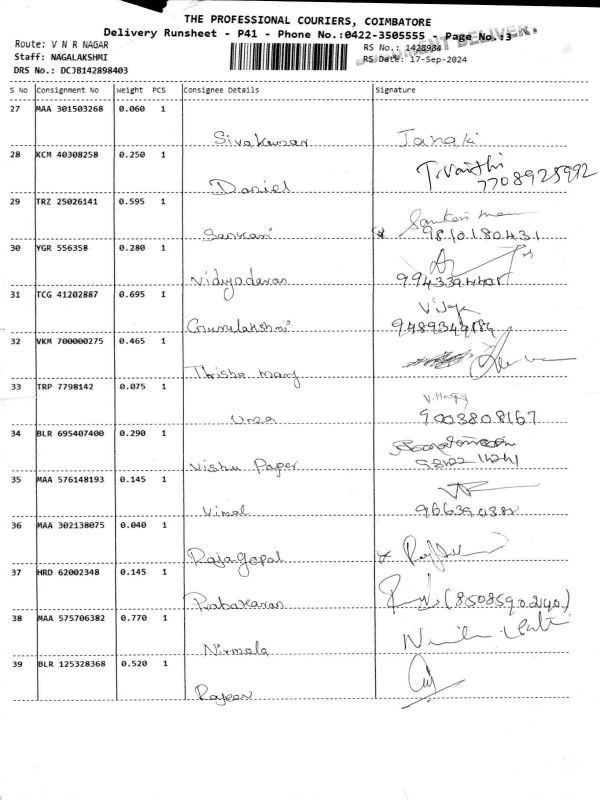 THE PROFESSIONAL COURIERS, COIMBATORE
Delivery Runsheet - P41 - Phone No.:0422-3505555 - Page No.:3
DOCUMENT DELIVERY
Route: V N R NAGAR
Staff: NAGALAKSHMI
DRS No.: DCJB142898403
RS No.: 1428984
RS Date: 17-Sep-2024
S No Consignment No Weight PCS Consignee Details Signature
27 MAA 301503268 0.060 1
Sivakumar Janaki
28 KCM 40308258 0.250 1
Daniel T.Vasithi
7708925992
29 TRZ 25026141 0.595 1
Sankari
9810180431
30 YGR 556358 0.280 1
Vidyadaran
31 TCG 41202887 0.695 1
Gurulakshmi Vijaya
32 VKM 700000275 0.465 1
Thisha mary
33 TRP 7798142 0.075 1
9003808167
34 BLR 695407400 0.290 1
Vishu Paper
35 MAA 576148193 0.145 1
Vimal
36 MAA 302138075 0.040 1
Rajagopal
37 HRD 62002348 0.145 1
Prabakaran (8508590240)
38 MAA 575706382 0.770 1
Nirmala
39 BLR 125328368 0.520 1
Rajeev